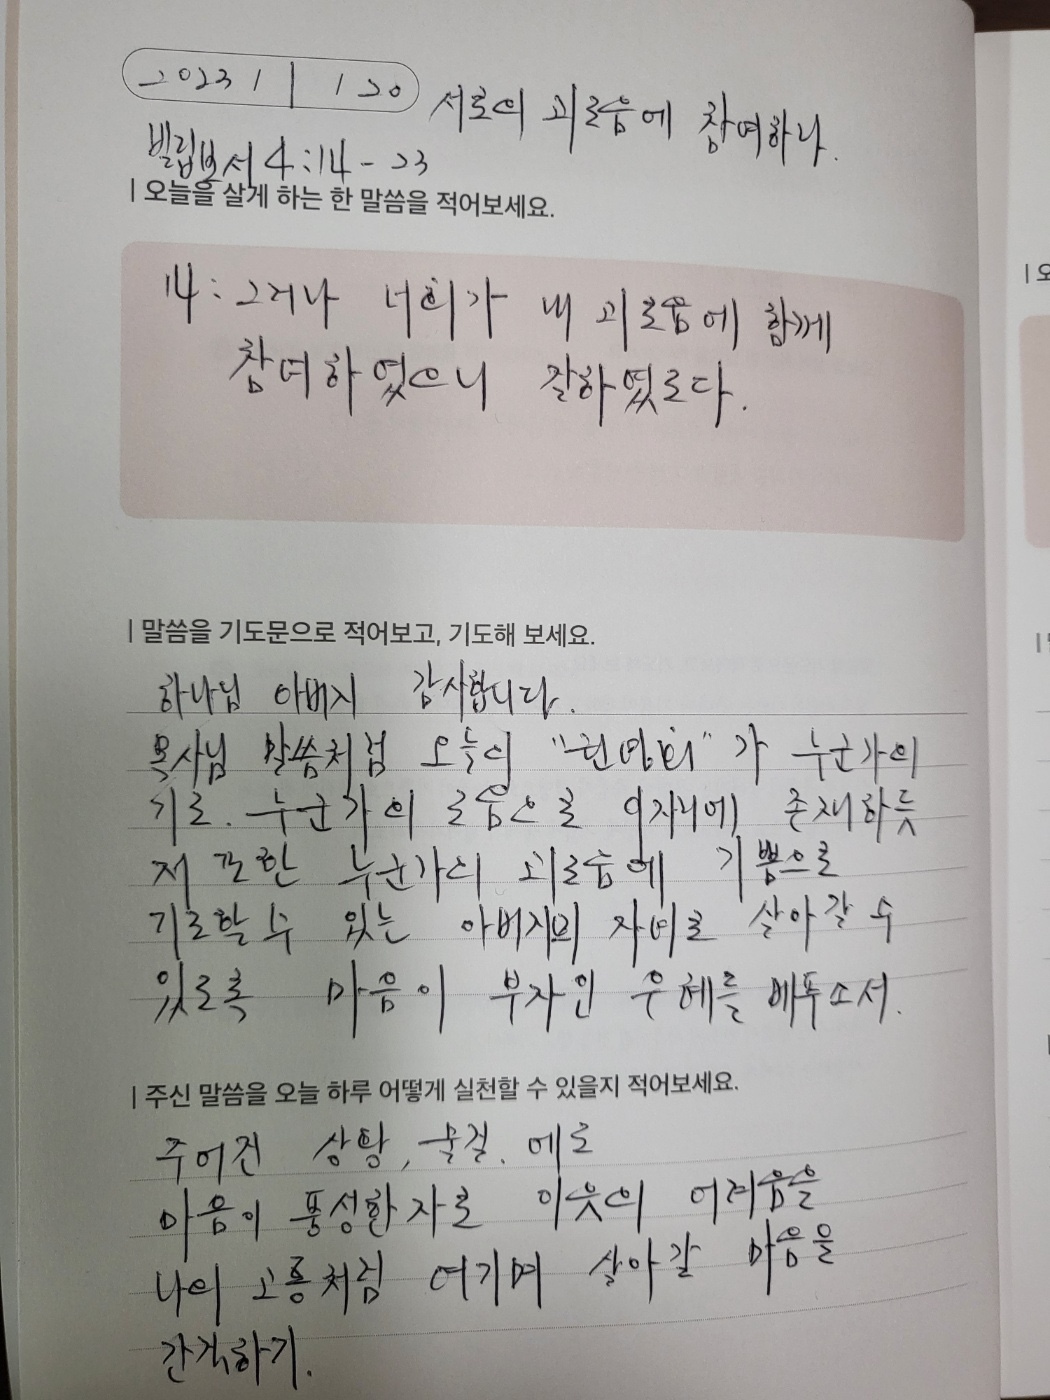 2023 1 | 1 20 서로의 괴로움에 참여하나.
빌립보서 4:14-23
| 오늘을 살게 하는 한 말씀을 적어보세요.
14: 그러나 너희가 내 괴로움에 함께
참여하였으니 잘하였로다.
| 말씀을 기도문으로 적어보고, 기도해 보세요.
하나님 아버지 감사합니다.
목사님 말씀처럼 오늘의 가 누군가의
기로. 누군가의 로움으로 이자리에 존재하듯
저 또한 누군가의 괴로움에 기쁨으로
기도할 수 있는 아버지의 자녀로 살아갈 수
있도록 마음이 부자인 은혜를 베푸소서.
| 주신 말씀을 오늘 하루 어떻게 실천할 수 있을지 적어보세요.
주어진 상황, 물질. 에도
마음이 풍성한 자로 이웃의 어려움을
나의 고통처럼 여기며 살아갈 마음을
간직하기.